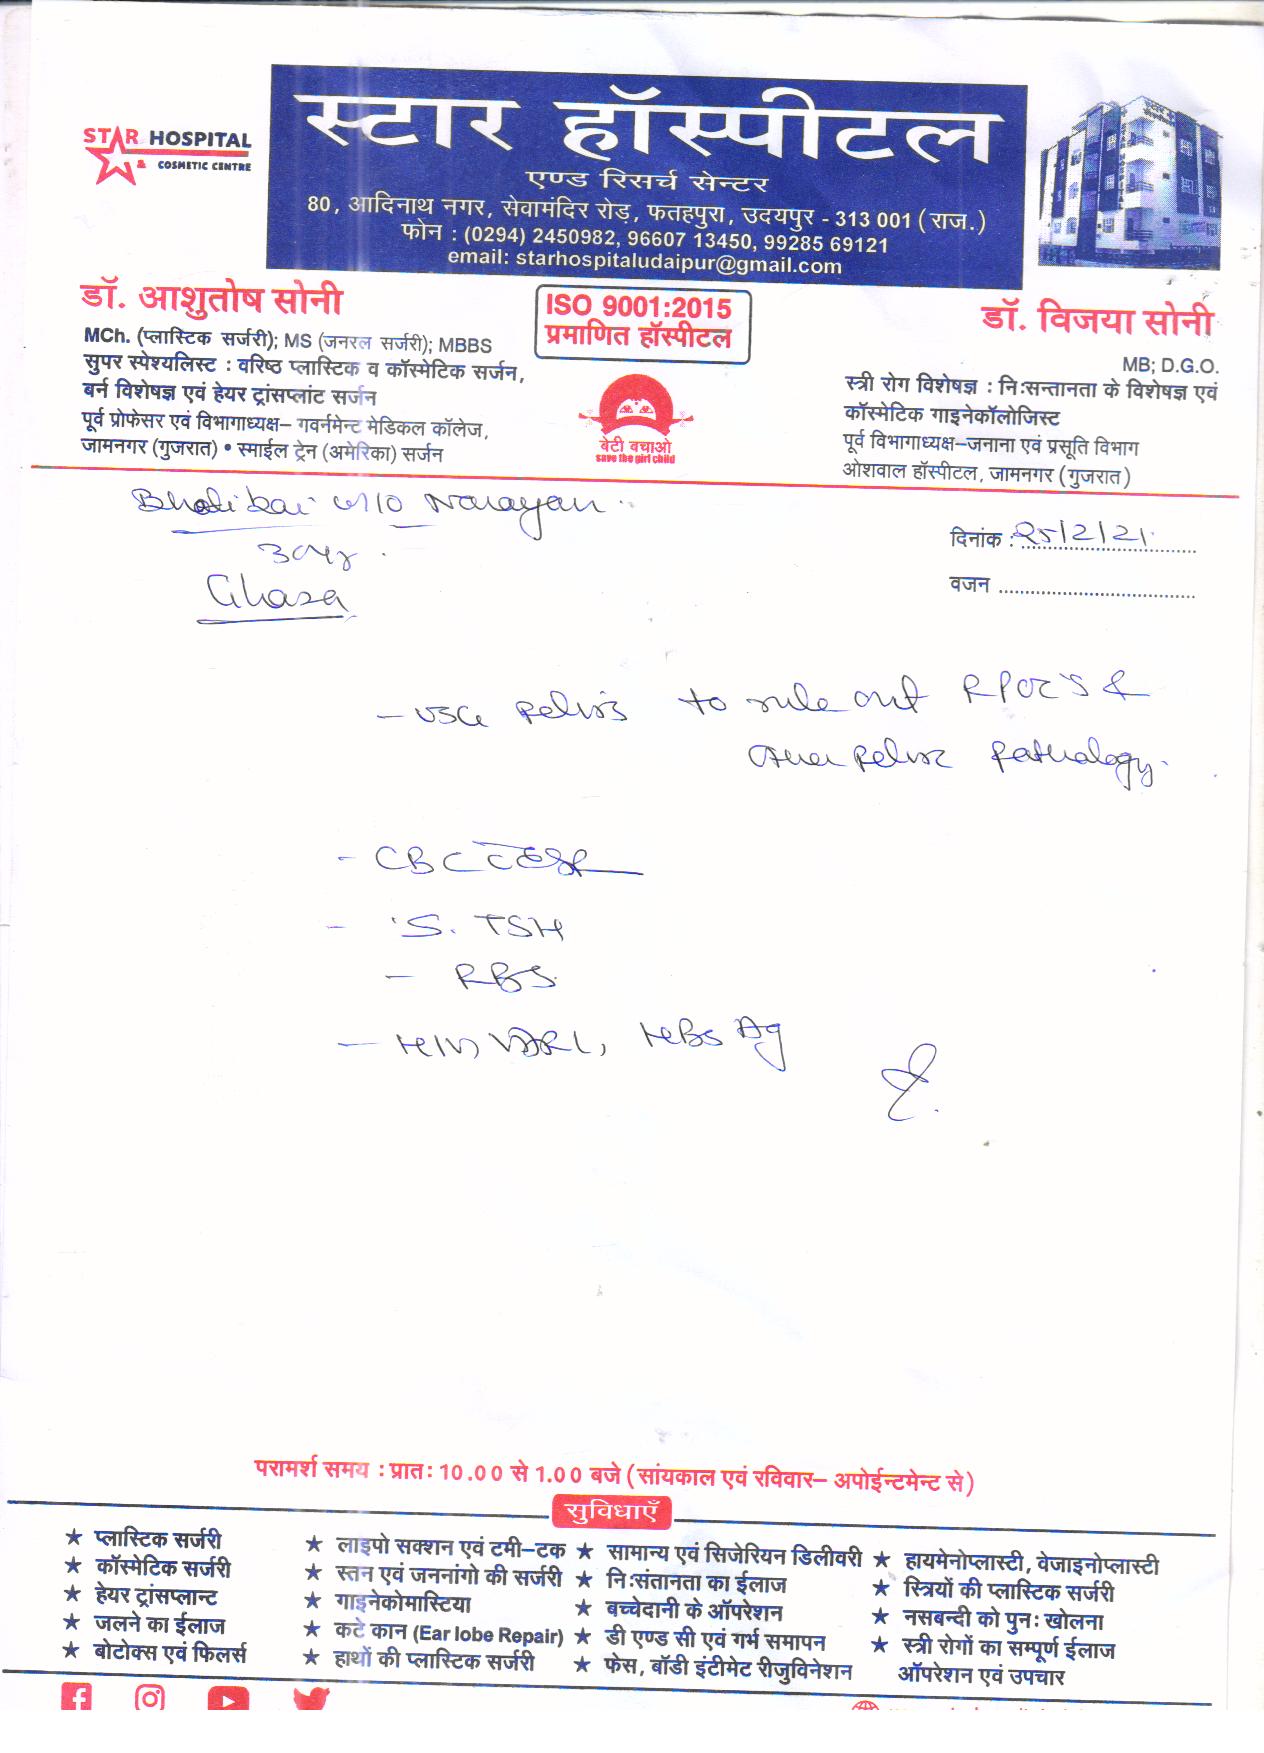 स्टार हॉस्पीटल
STAR HOSPITAL
& COSMETIC CENTRE
एण्ड रिसर्च सेन्टर
80, आदिनाथ नगर, सेवामंदिर रोड़, फतहपुरा, उदयपुर - 313 001 (राज.)
फोन : (0294) 2450982, 96607 13450, 99285 69121
email: starhospitaludaipur@gmail.com
डॉ. आशुतोष सोनी
MCh. (प्लास्टिक सर्जरी); MS (जनरल सर्जरी); MBBS
सुपर स्पेश्यलिस्ट : वरिष्ठ प्लास्टिक व कॉस्मेटिक सर्जन,
बर्न विशेषज्ञ एवं हेयर ट्रांसप्लांट सर्जन
पूर्व प्रोफेसर एवं विभागाध्यक्ष– गवर्नमेन्ट मेडिकल कॉलेज,
जामनगर (गुजरात) • स्माईल ट्रेन (अमेरिका) सर्जन
ISO 9001:2015
प्रमाणित हॉस्पीटल
बेटी बचाओ
save the girl child
डॉ. विजया सोनी
MB; D.G.O.
स्त्री रोग विशेषज्ञ : नि:सन्तानता के विशेषज्ञ एवं
कॉस्मेटिक गाइनेकॉलोजिस्ट
पूर्व विभागाध्यक्ष–जनाना एवं प्रसूति विभाग
ओशवाल हॉस्पीटल, जामनगर (गुजरात)
W/O Narayan
दिनांक : 25/2/21
30yr
वजन
Ghasa
- USG Pelvis to rule out RPOC'S &
other pelvic pathology.
- CBC c ESR
- S. TSH
- RBS
- HIV, VDRL, HBsAg
परामर्श समय : प्रात: 10.00 से 1.00 बजे (सांयकाल एवं रविवार– अपोईन्टमेन्ट से)
सुविधाएँ
★ प्लास्टिक सर्जरी
★ कॉस्मेटिक सर्जरी
★ हेयर ट्रांसप्लान्ट
★ जलने का ईलाज
★ बोटोक्स एवं फिलर्स
★ लाइपो सक्शन एवं टमी–टक
★ स्तन एवं जननांगो की सर्जरी
★ गाइनेकोमास्टिया
★ कटे कान (Ear lobe Repair)
★ हाथों की प्लास्टिक सर्जरी
★ सामान्य एवं सिजेरियन डिलीवरी
★ नि:संतानता का ईलाज
★ बच्चेदानी के ऑपरेशन
★ डी एण्ड सी एवं गर्भ समापन
★ फेस, बॉडी इंटीमेट रीजुविनेशन
★ हायमेनोप्लास्टी, वेजाइनोप्लास्टी
★ स्त्रियों की प्लास्टिक सर्जरी
★ नसबन्दी को पुन: खोलना
★ स्त्री रोगों का सम्पूर्ण ईलाज
ऑपरेशन एवं उपचार